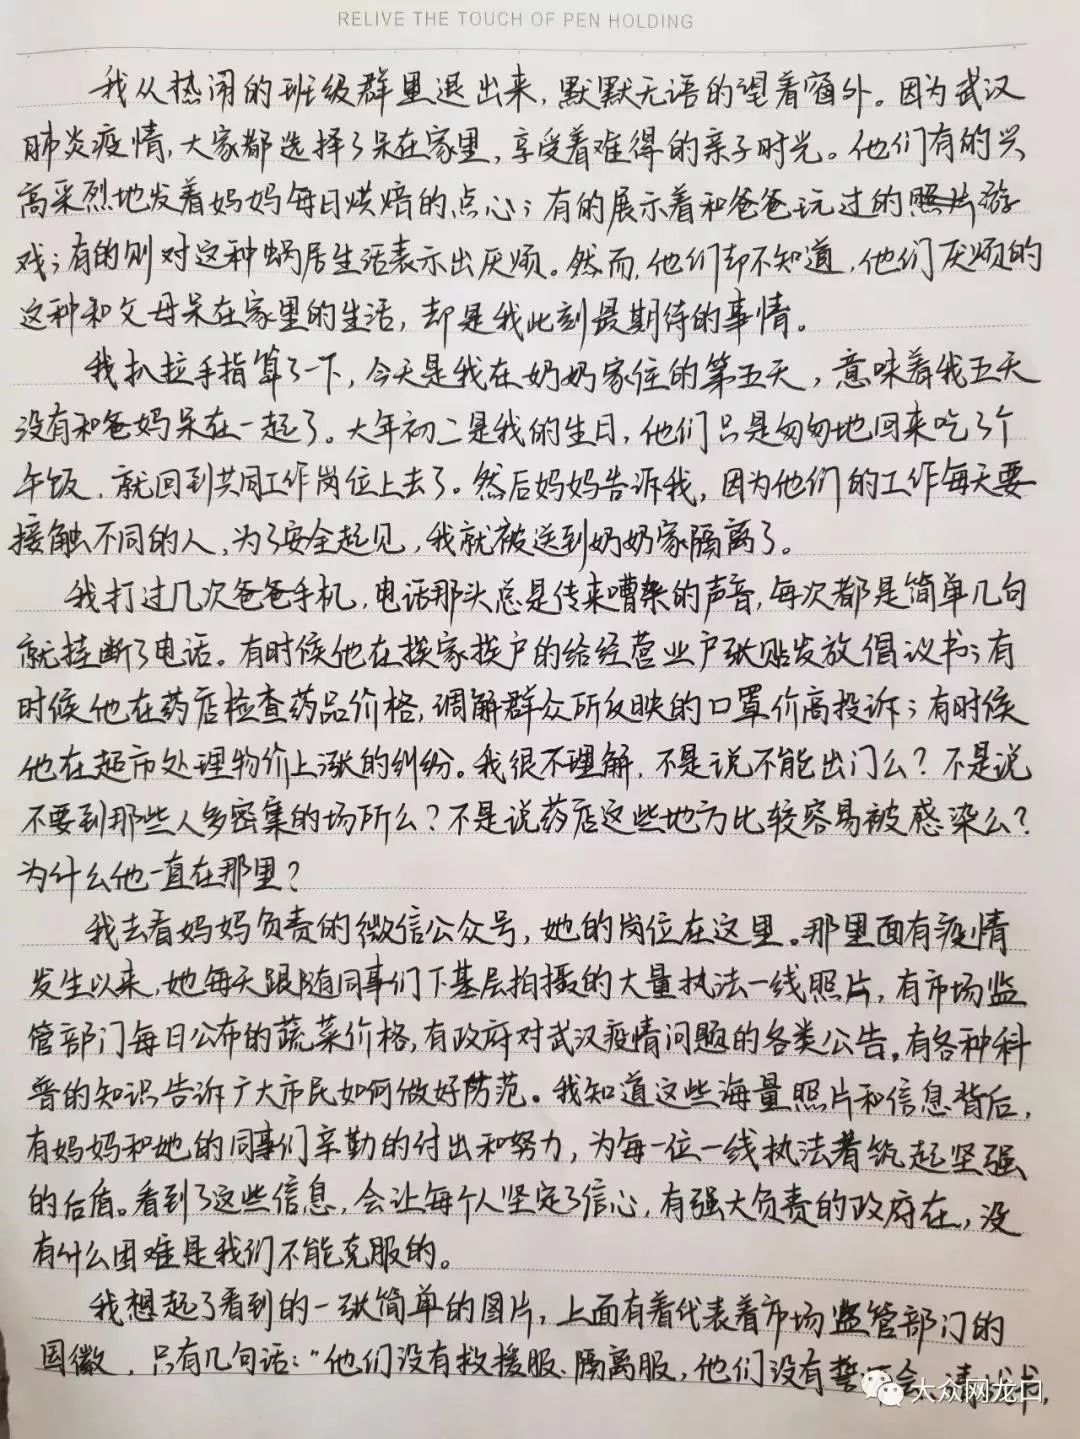 RELIVE THE TOUCH OF PEN HOLDING
我从热闹的班级群里退出来，默默无语的望着窗外。因为武汉
肺炎疫情，大家都选择了呆在家里，享受着难得的亲子时光。他们有的兴
高采烈地发着妈妈每日烘焙的点心；有的展示着和爸爸玩过的游
戏；有的则对这种蜗居生活表示出厌烦。然而，他们却不知道，他们厌烦的
这种和父母呆在家里的生活，却是我此刻最期待的事情。
我扒拉手指算了一下，今天是我在奶奶家住的第五天，意味着我五天
没有和爸妈呆在一起了。大年初二是我的生日，他们只是匆匆地回来吃了个
午饭，就回到共同工作岗位上去了。然后妈妈告诉我，因为他们的工作每天要
接触不同的人，为了安全起见，我就被送到奶奶家隔离了。
我打过几次爸爸手机，电话那头总是传来嘈杂的声音，每次都是简单几句
就挂断了电话。有时候他在挨家挨户的给经营业户张贴发放倡议书；有
时候他在药店检查药品价格，调解群众所反映的口罩价高投诉；有时候
他在超市处理物价上涨的纠纷。我很不理解，不是说不能出门么？不是说
不要到那些人多密集的场所么？不是说药店这些地方比较容易被感染么？
为什么他一直在那里？
我去看妈妈负责的微信公众号，她的岗位在这里。那里面有疫情
发生以来，她每天跟随同事们下基层拍摄的大量执法一线照片，有市场监
管部门每日公布的蔬菜价格，有政府对武汉疫情问题的各类公告，有各种科
普的知识告诉广大市民如何做好防范。我知道这些海量照片和信息背后，
有妈妈和她的同事们辛勤的付出和努力，为每一位一线执法者筑起坚强
的后盾。看到了这些信息，会让每个人坚定了信心，有强大负责的政府在，没
有什么困难是我们不能克服的。
我想起了看到的一张简单的图片，上面有着代表着市场监管部门的
国徽，只有几句话：“他们没有救援服、隔离服，他们没有誓师会、请战书，
大众网龙口